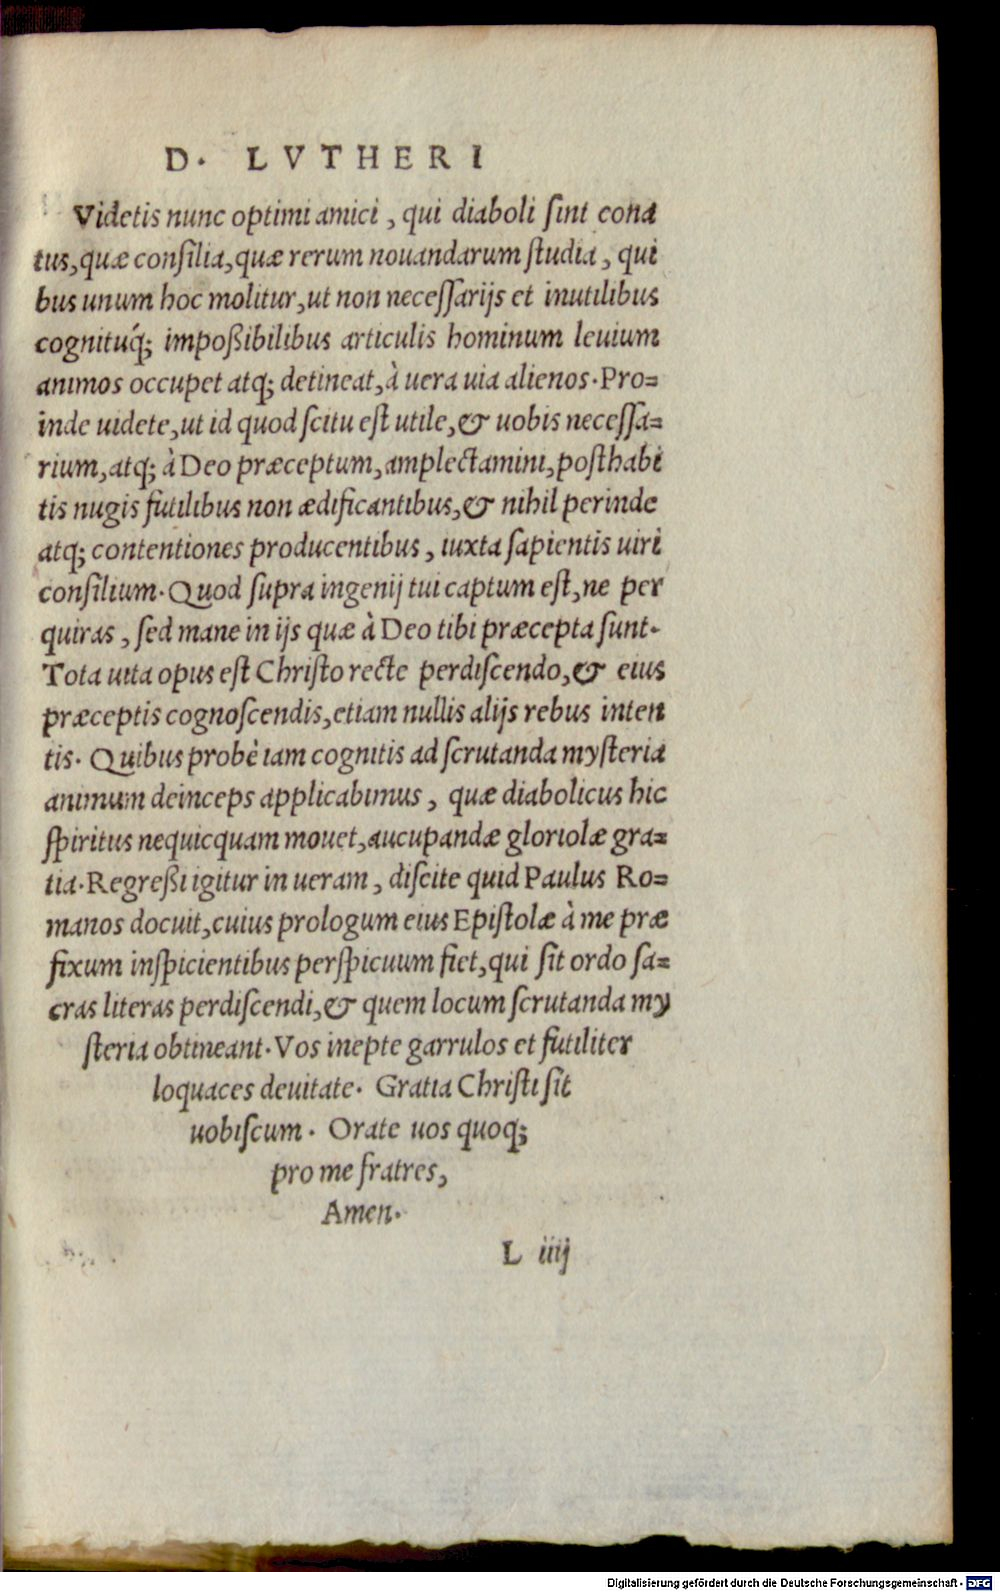 D. LVTHERI
Videtis nunc optimi amici, qui diaboli ſint cona
tus, quæ conſilia, quæ rerum nouandarum ſtudia, qui
bus unum hoc molitur, ut non neceſſarijs et inutilibus
cognituq́; impoßibilibus articulis hominum leuium
animos occupet atq; detineat, à uera uia alienos. Pro=
inde uidete, ut id quod ſcitu eſt utile, & uobis neceſſa=
rium, atq; à Deo præceptum, amplectamini, poſthabi
tis nugis futilibus non ædificantibus, & nihil perinde
atq; contentiones producentibus, iuxta ſapientis uiri
conſilium. Quod ſupra ingenij tui captum eſt, ne per
quiras, ſed mane in ijs quæ à Deo tibi præcepta ſunt.
Tota uita opus eſt Chriſto recte perdiſcendo, & eius
præceptis cognoſcendis, etiam nullis alijs rebus inten
tis. Quibus probè iam cognitis ad ſcrutanda myſteria
animum deinceps applicabimus, quæ diabolicus hic
ſpiritus nequicquam mouet, aucupandæ gloriolæ gra=
tia. Regreßi igitur in ueram, diſcite quid Paulus Ro=
manos docuit, cuius prologum eius Epiſtolæ à me præ
fixum inſpicientibus perſpicuum fiet, qui ſit ordo ſa=
cras literas perdiſcendi, & quem locum ſcrutanda my
ſteria obtineant. Vos inepte garrulos et futiliter
loquaces deuitate. Gratia Chriſti ſit
uobiſcum. Orate uos quoq;
pro me fratres,
Amen.
L iiij
Digitalisierung gefördert durch die Deutsche Forschungsgemeinschaft - DFG